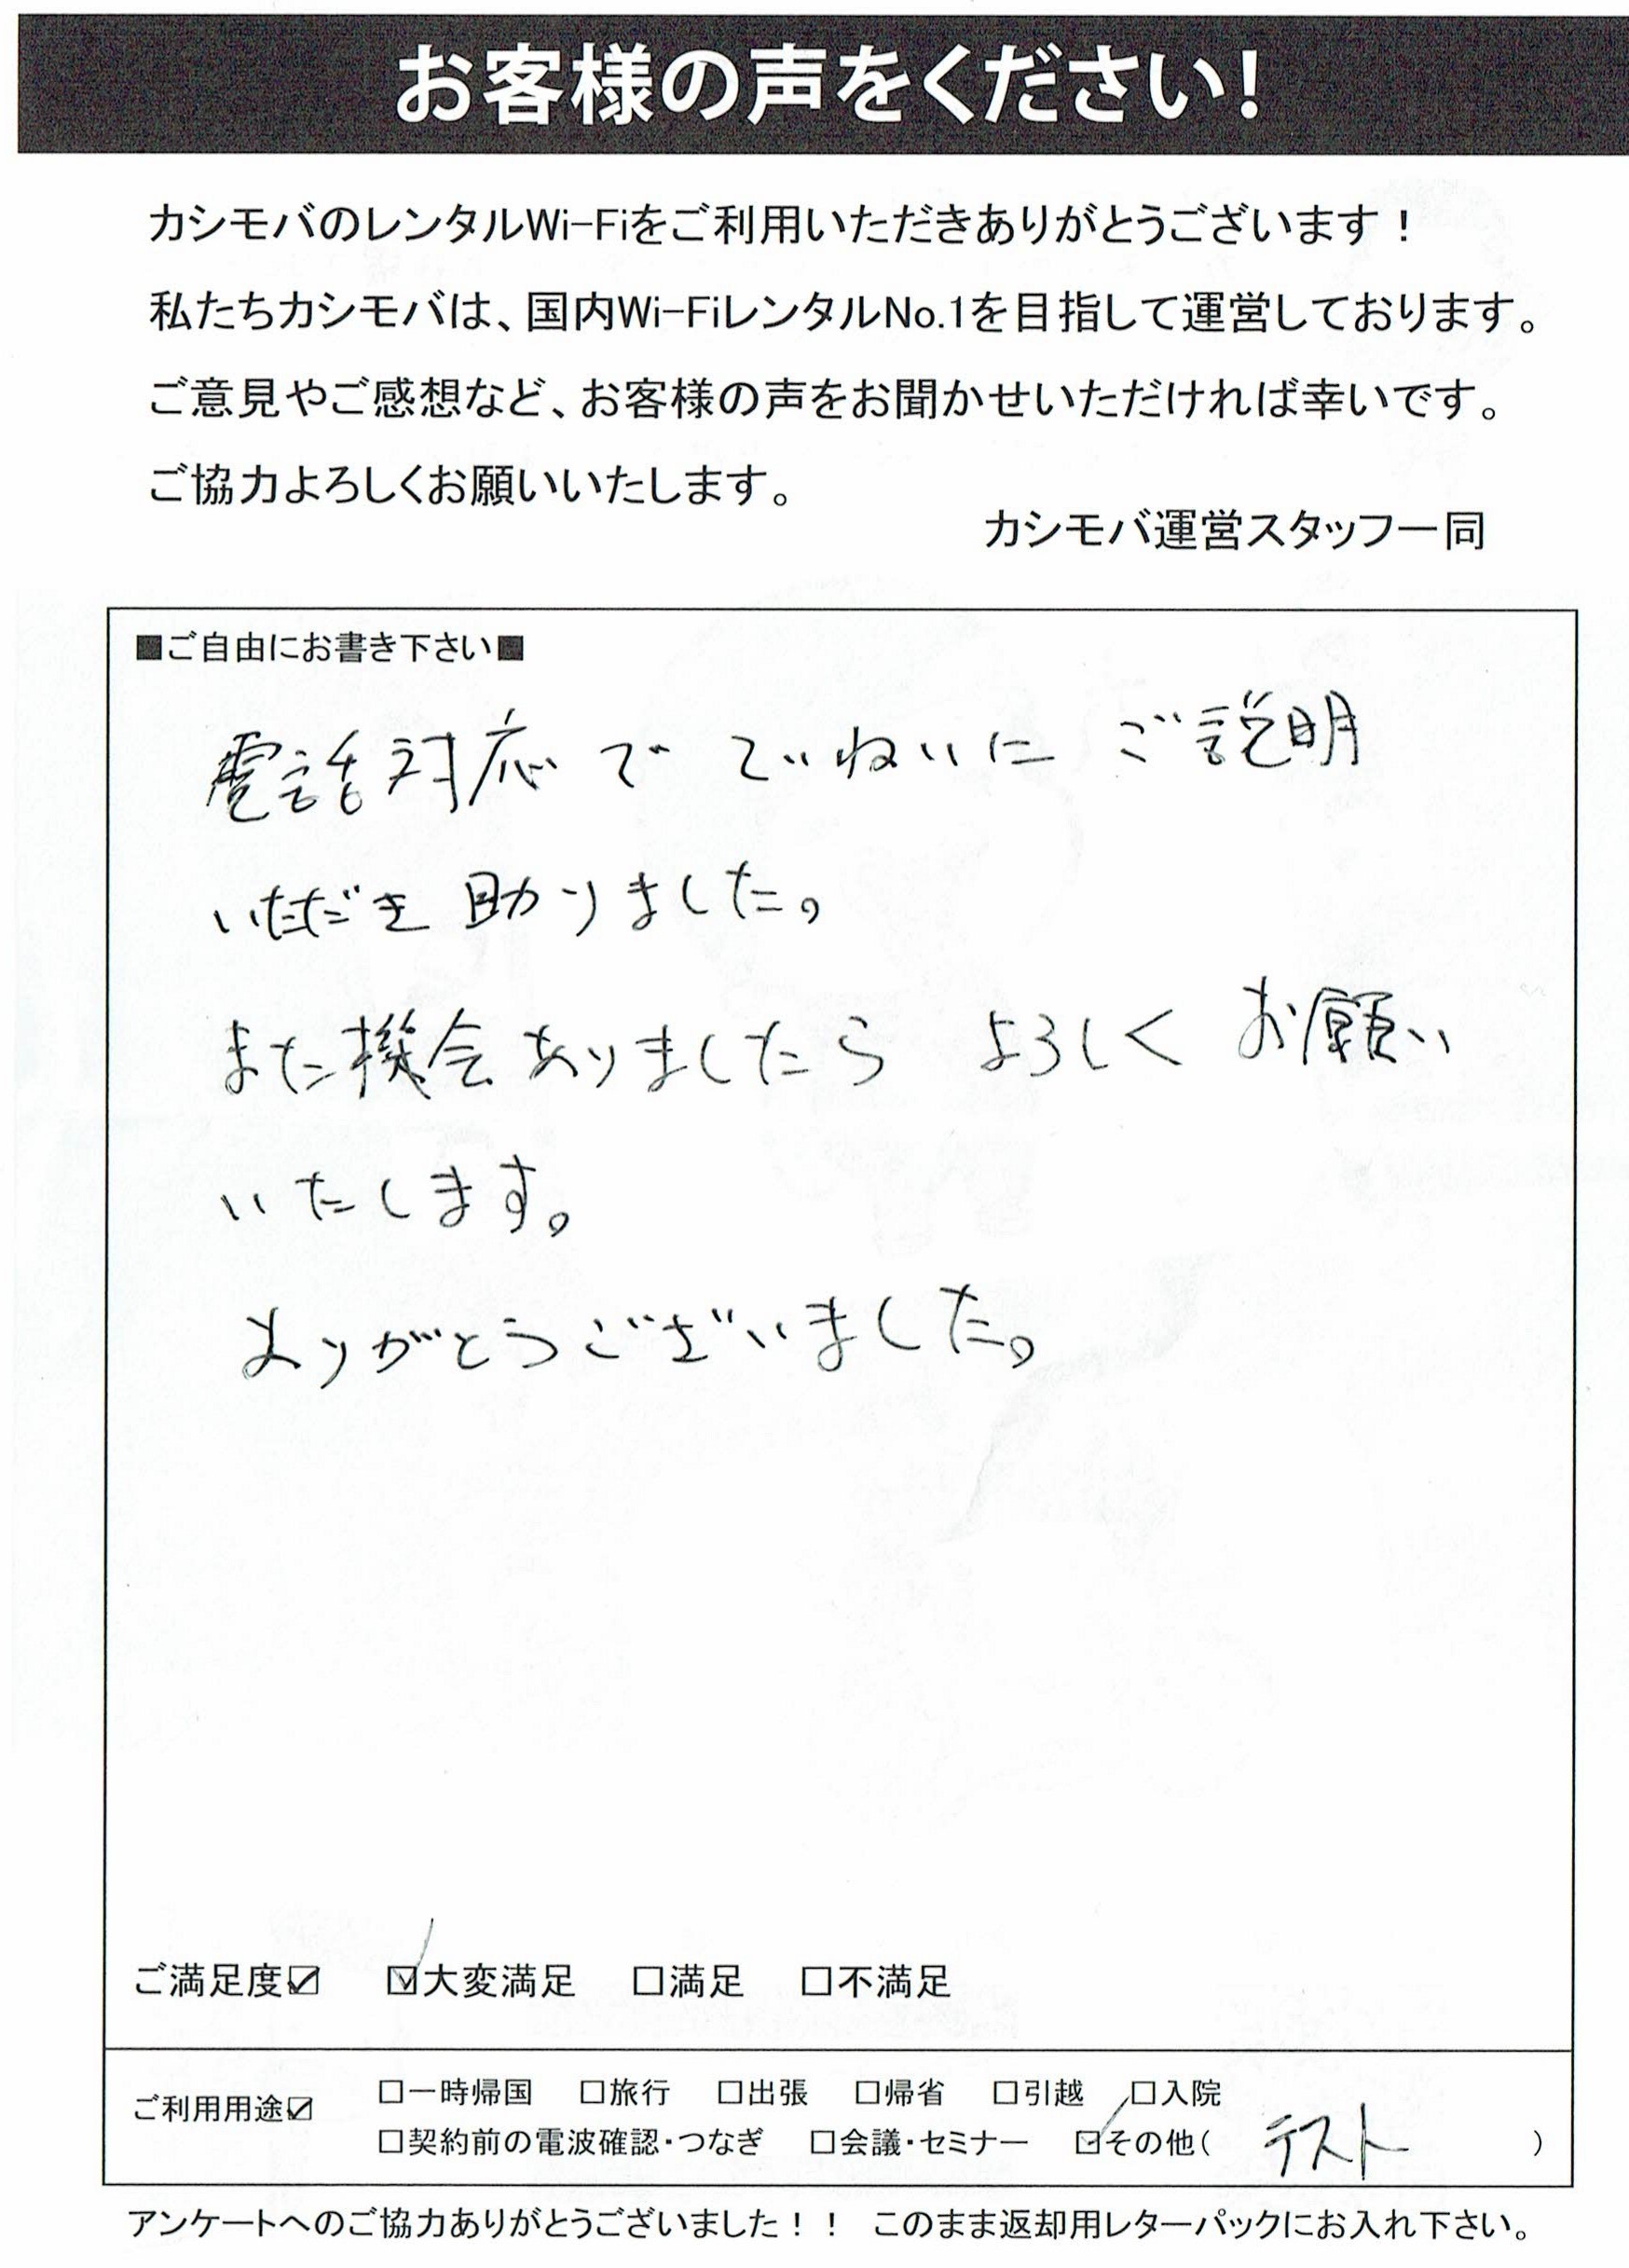 お客様の声をください!
カシモバのレンタルWi-Fiをご利用いただきありがとうございます！
私たちカシモバは、国内Wi-FiレンタルNo.1を目指して運営しております。
ご意見やご感想など、お客様の声をお聞かせいただければ幸いです。
ご協力よろしくお願いいたします。
カシモバ運営スタッフ一同
■ご自由にお書き下さい■
電話対応で ていねいに ご説明
いただき 助りました。
また機会ありましたら よろしく お願い
いたします。
ありがとうございました。
ご満足度☑ ☑大変満足 □満足 □不満足
ご利用用途☑ □一時帰国 □旅行 □出張 □帰省 □引越 □入院
□契約前の電波確認・つなぎ □会議・セミナー ☑その他( テスト )
アンケートへのご協力ありがとうございました！！ このまま返却用レターパックにお入れ下さい。